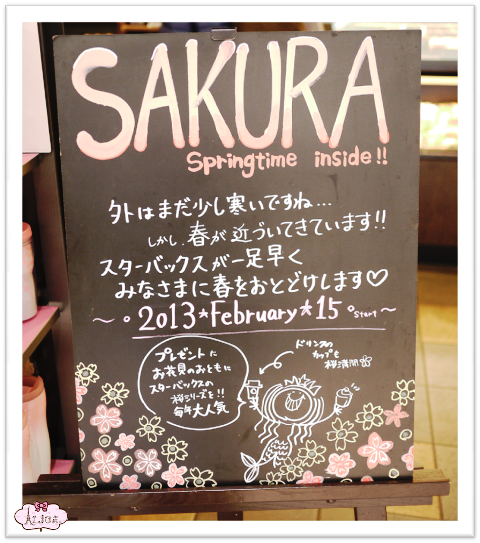 SAKURA
Springtime inside!!
外はまだ少し寒いですね...
しかし、春が近づいてきています!!
スターバックスが一足早く
みなさまに春をおとどけします♡
～。2013★February★15 。Start～
プレゼントに
お花見のおともに
スターバックスの
桜シリーズを!!
毎年大人気
ドリンクの
カップも
桜満開